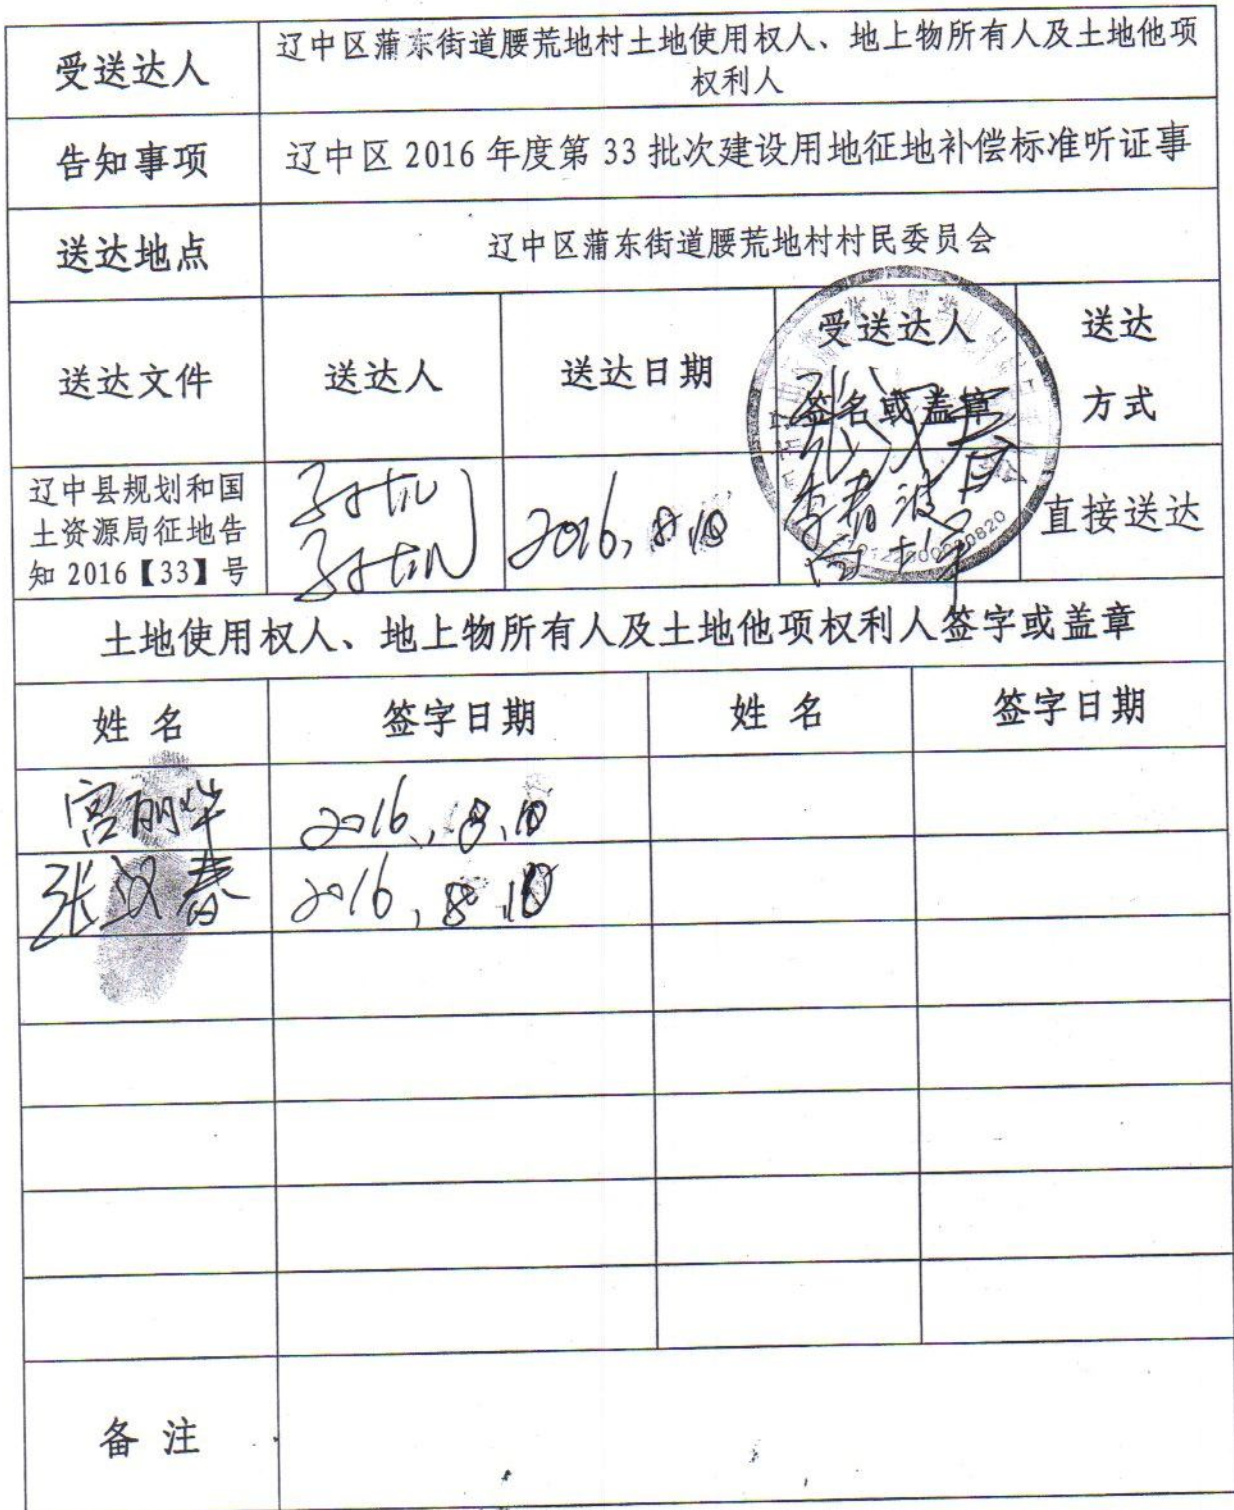 受送达人
辽中区蒲东街道腰荒地村土地使用权人、地上物所有人及土地他项
权利人
告知事项
辽中区 2016 年度第 33 批次建设用地征地补偿标准听证事
送达地点
辽中区蒲东街道腰荒地村村民委员会
送达文件
送达人
送达日期
受送达人
签名或盖章
送达
方式
辽中县规划和国
土资源局征地告
知 2016【33】号
2016.8.10
张汉春
直接送达
土地使用权人、地上物所有人及土地他项权利人签字或盖章
姓 名
签字日期
姓 名
签字日期
宫丽华
2016.8.10
张汉春
2016.8.10
备 注